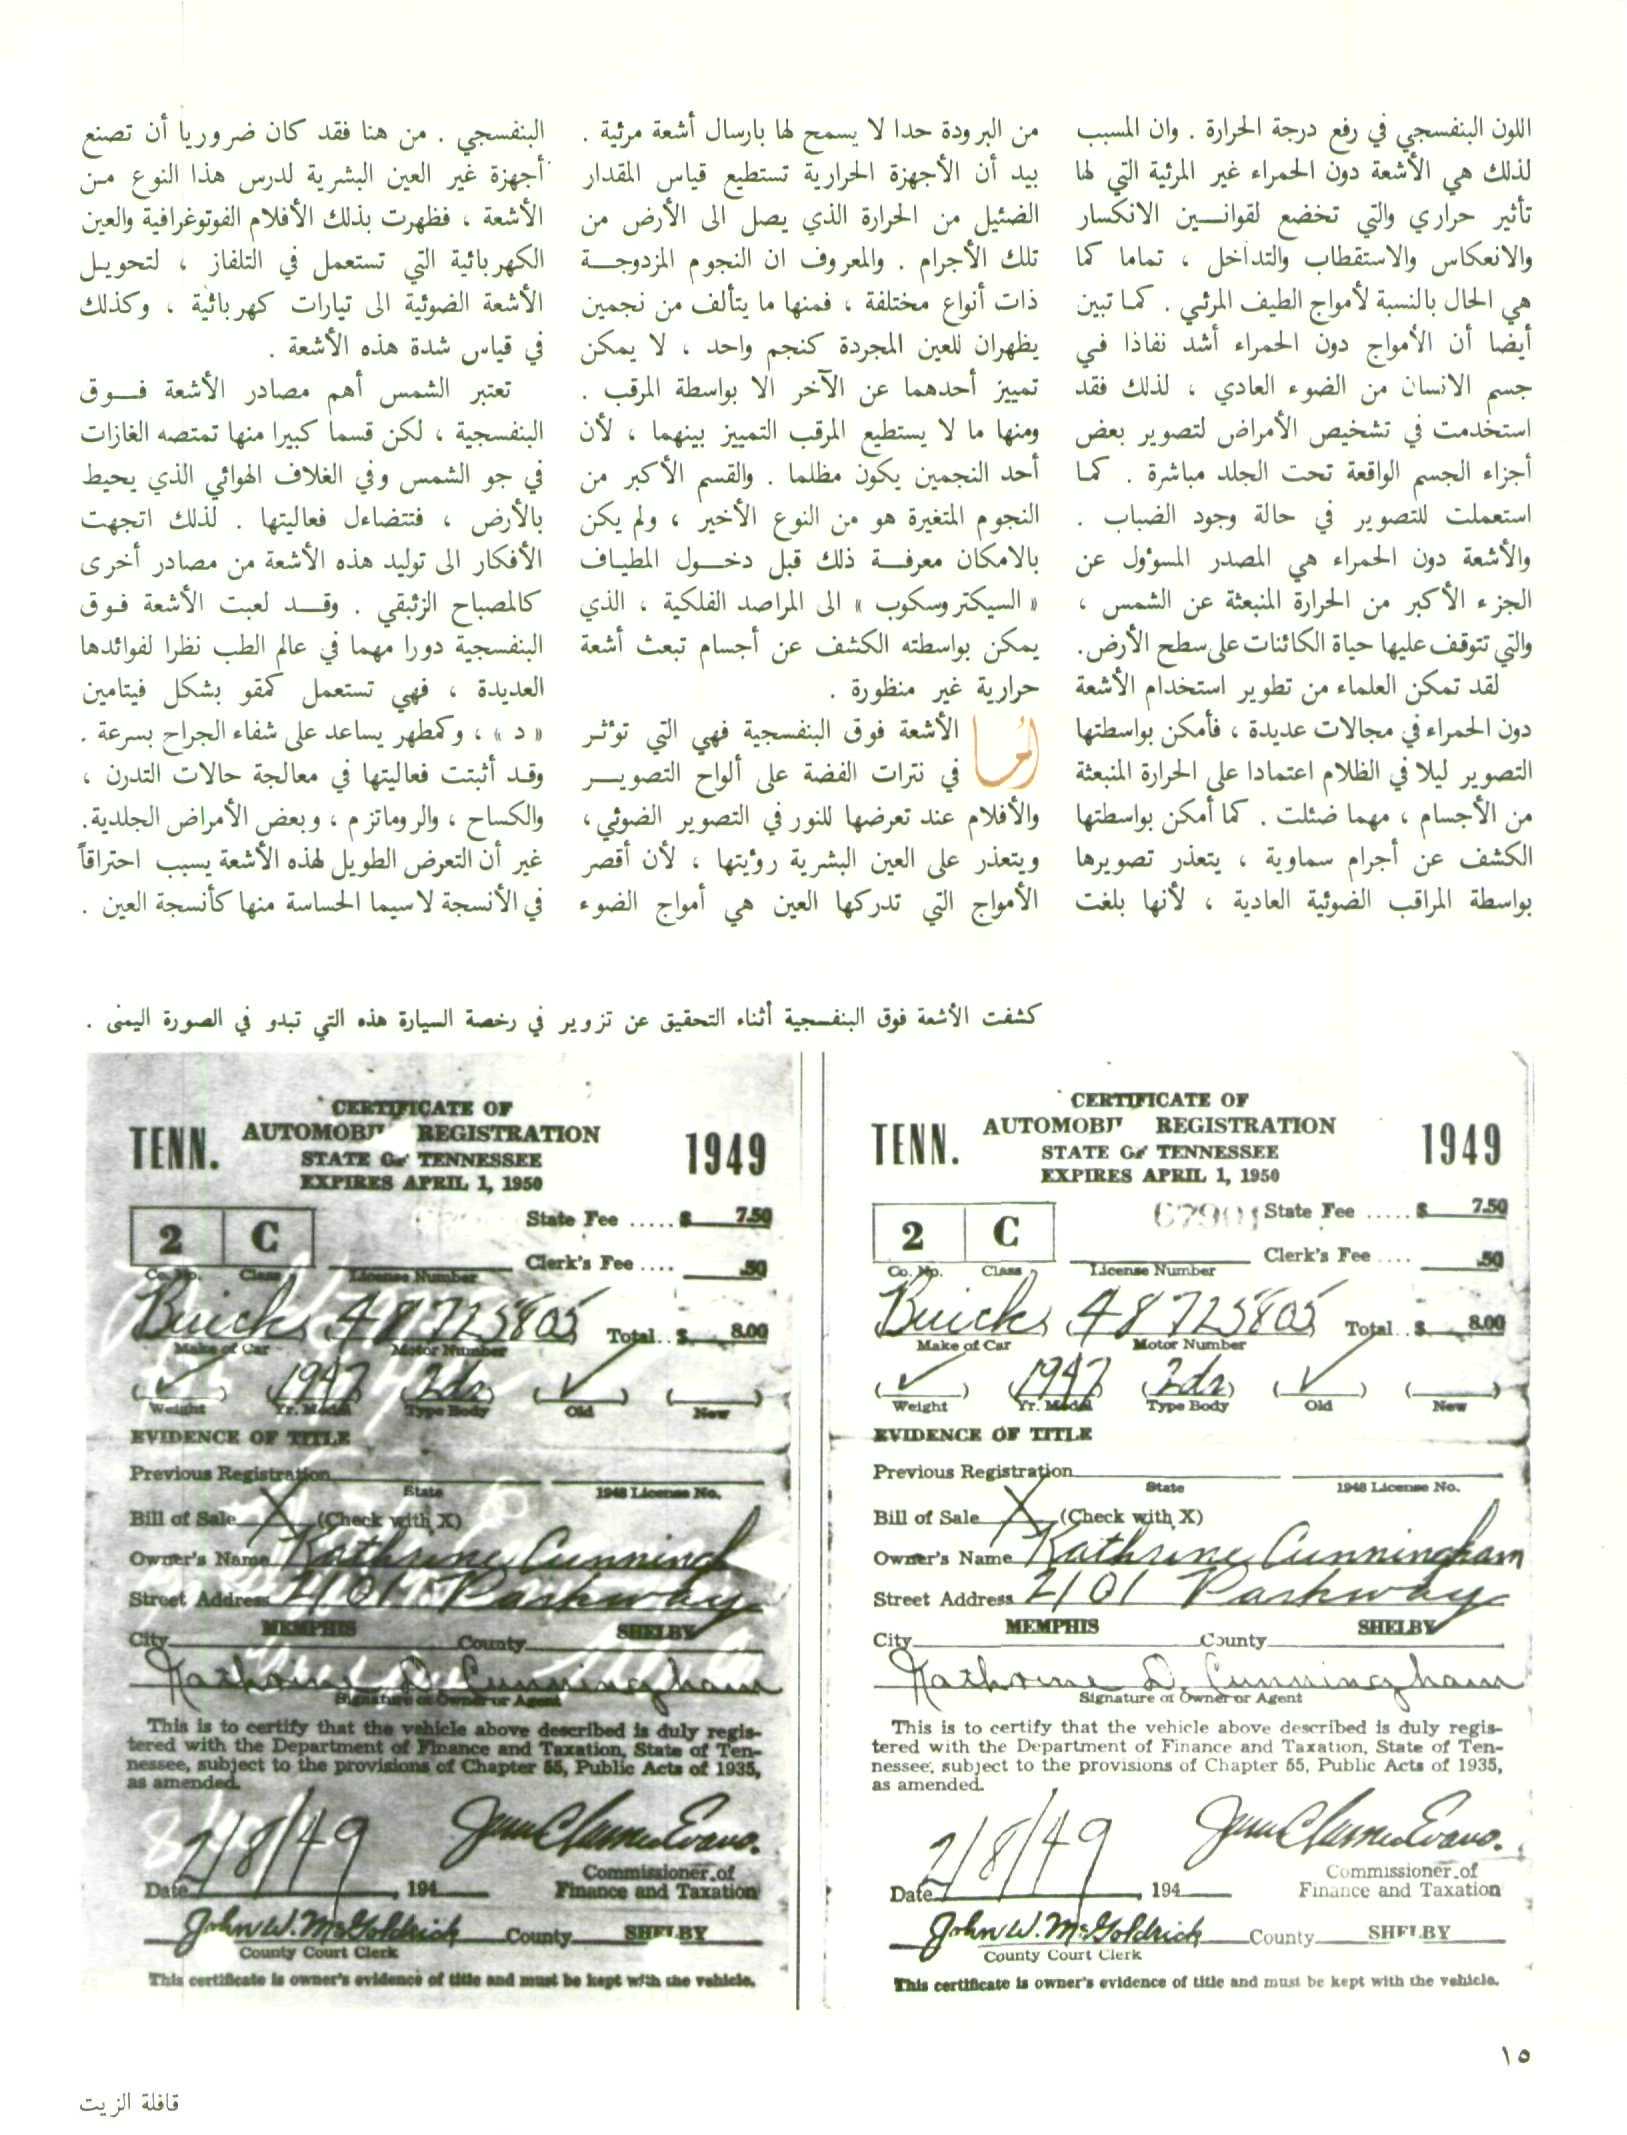 اللون البنفسجي في رفع درجة الحرارة . وان المسبب
لذلك هي الأشعة دون الحمراء غير المرئية التي لها
تأثير حراري والتي تخضع لقوانـــين الانكسار
والانعكاس والاستقطاب والتداخل ، تماما كما
هي الحال بالنسبة لأمواج الطيف المرئي . كمـا تبين
أيضا أن الأمواج دون الحمراء أشد نفاذا فـي
جسم الانسان من الضوء العادي ، لذلك فقد
استخدمت في تشخيص الأمراض لتصوير بعض
أجزاء الجسم الواقعة تحت الجلد مباشرة . كمـا
استعملت للتصوير في حالة وجود الضباب .
والأشعة دون الحمراء هي المصدر المسؤول عن
الجزء الأكبر من الحرارة المنبعثة عن الشمس ،
والتي تتوقف عليها حياة الكائنات على سطح الأرض.
لقد تمكن العلماء من تطوير استخدام الأشعة
دون الحمراء في مجالات عديدة ، فأمكن بواسطتها
التصوير ليلا في الظلام اعتمادا على الحرارة المنبعثة
من الأجسام ، مهما ضئلت . كما أمكن بواسطتها
الكشف عن أجرام سماوية ، يتعذر تصويرها
بواسطة المراقب الضوئية العادية ، لأنها بلغت
من البرودة حدا لا يسمح لها بارسال أشعة مرئية .
بيد أن الأجهزة الحرارية تستطيع قياس المقدار
الضئيل من الحرارة الذي يصل الى الأرض من
تلك الأجرام . والمعروف ان النجوم المزدوجـــة
ذات أنواع مختلفة ، فمنها ما يتألف من نجمين
يظهران للعين المجردة كنجم واحد ، لا يمكن
تمييز أحدهما عن الآخر الا بواسطة المرقب .
ومنها ما لا يستطيع المرقب التمييز بينهما ، لأن
أحد النجمين يكون مظلما . والقسم الأكبر من
النجوم المتغيرة هو من النوع الأخير ، ولم يكن
بالامكان معرفـــة ذلك قبل دخـــول المطيـاف
« السيكتروسكوب » الى المراصد الفلكية ، الذي
يمكن بواسطته الكشف عن أجسام تبعث أشعة
حرارية غير منظورة .
أما الأشعة فوق البنفسجية فهي التي تؤثـر
في نترات الفضة على ألواح التصويـــر
والأفلام عند تعرضها للنور في التصوير الضوئي،
ويتعذر على العين البشرية رؤيتها ، لأن أقصر
الأمواج التي تدركها العين هي أمواج الضوء
البنفسجي . من هنا فقد كان ضروريا أن تصنع
أجهزة غير العين البشرية لدرس هذا النوع مـن
الأشعة ، فظهرت بذلك الأفلام الفوتوغرافية والعين
الكهربائية التي تستعمل في التلفاز ، لتحويـل
الأشعة الضوئية الى تيارات كهربائية ، وكذلك
في قياس شدة هذه الأشعة .
تعتبر الشمس أهم مصادر الأشعة فـــوق
البنفسجية ، لكن قسما كبيرا منها تمتصه الغازات
في جو الشمس وفي الغلاف الهوائي الذي يحيط
بالأرض ، فتتضاءل فعاليتها . لذلك اتجهت
الأفكار الى توليد هذه الأشعة من مصادر أخرى
كالمصباح الزئبقي . وقـــد لعبت الأشعة فـوق
البنفسجية دورا مهما في عالم الطب نظرا لفوائدها
العديدة ، فهي تستعمل كمقو بشكل فيتامين
« د » ، وكمطهر يساعد على شفاء الجراح بسرعة .
وقـد أثبتت فعاليتها في معالجة حالات التدرن ،
والكساح ، والروماتزم ، وبعض الأمراض الجلدية.
غير أن التعرض الطويل لهذه الأشعة يسبب احتراقاً
في الأنسجة لاسيما الحساسة منها كأنسجة العين .
كشفت الأشعة فوق البنفسجية أثناء التحقيق عن تزوير في رخصة السيارة هذه التي تبدو في الصورة اليمنى .
CERTIFICATE OF
TENN. AUTOMOBI REGISTRATION 1949
STATE OF TENNESSEE
EXPIRES APRIL 1, 1950
2 C State Fee ..... $ 7.50
Clerk's Fee .... .50
Co. No. Class License Number
Buick 48725805 Total .. $ 8.00
Make of Car Motor Number
(✓) (1947) (2dr) (✓) ( )
Weight Yr. Model Type Body Old New
EVIDENCE OF TITLE
Previous Registration
State 1948 License No.
Bill of Sale X (Check with X)
Owner's Name Kathrine Cunningh
Street Address 2101 Parkway
City MEMPHIS County SHELBY
Kathrine D. Cunningham
Signature of Owner or Agent
This is to certify that the vehicle above described is duly regis-
tered with the Department of Finance and Taxation, State of Ten-
nessee, subject to the provisions of Chapter 55, Public Acts of 1935,
as amended.
2/8/49
Commissioner of
Date , 194 Finance and Taxation
John W. McGoldrick County SHELBY
County Court Clerk
This certificate is owner's evidence of title and must be kept with the vehicle.
CERTIFICATE OF
TENN. AUTOMOBI REGISTRATION 1949
STATE OF TENNESSEE
EXPIRES APRIL 1, 1950
2 C 67901 State Fee ..... $ 7.50
Clerk's Fee .... .50
Co. No. Class License Number
Buick 48725805 Total .. $ 8.00
Make of Car Motor Number
(✓) (1947) (2dr) (✓) ( )
Weight Yr. Model Type Body Old New
EVIDENCE OF TITLE
Previous Registration
State 1948 License No.
Bill of Sale X (Check with X)
Owner's Name Kathrine Cunningham
Street Address 2101 Parkway
City MEMPHIS County SHELBY
Kathrine D. Cunningham
Signature of Owner or Agent
This is to certify that the vehicle above described is duly regis-
tered with the Department of Finance and Taxation, State of Ten-
nessee, subject to the provisions of Chapter 55, Public Acts of 1935,
as amended.
2/8/49
Commissioner of
Date , 194 Finance and Taxation
John W. McGoldrick County SHELBY
County Court Clerk
This certificate is owner's evidence of title and must be kept with the vehicle.
١٥
قافلة الزيت